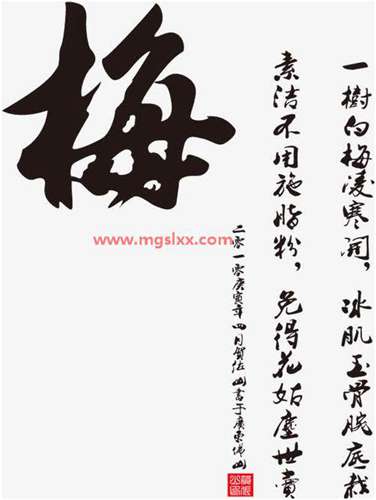 梅
一樹白梅凌寒開，冰肌玉骨腕底栽
素洁不用施脂粉，免得花姑塵世賣
二零一零庚寅年四月賀佐山書于廣東佛山
www.mgslxx.com